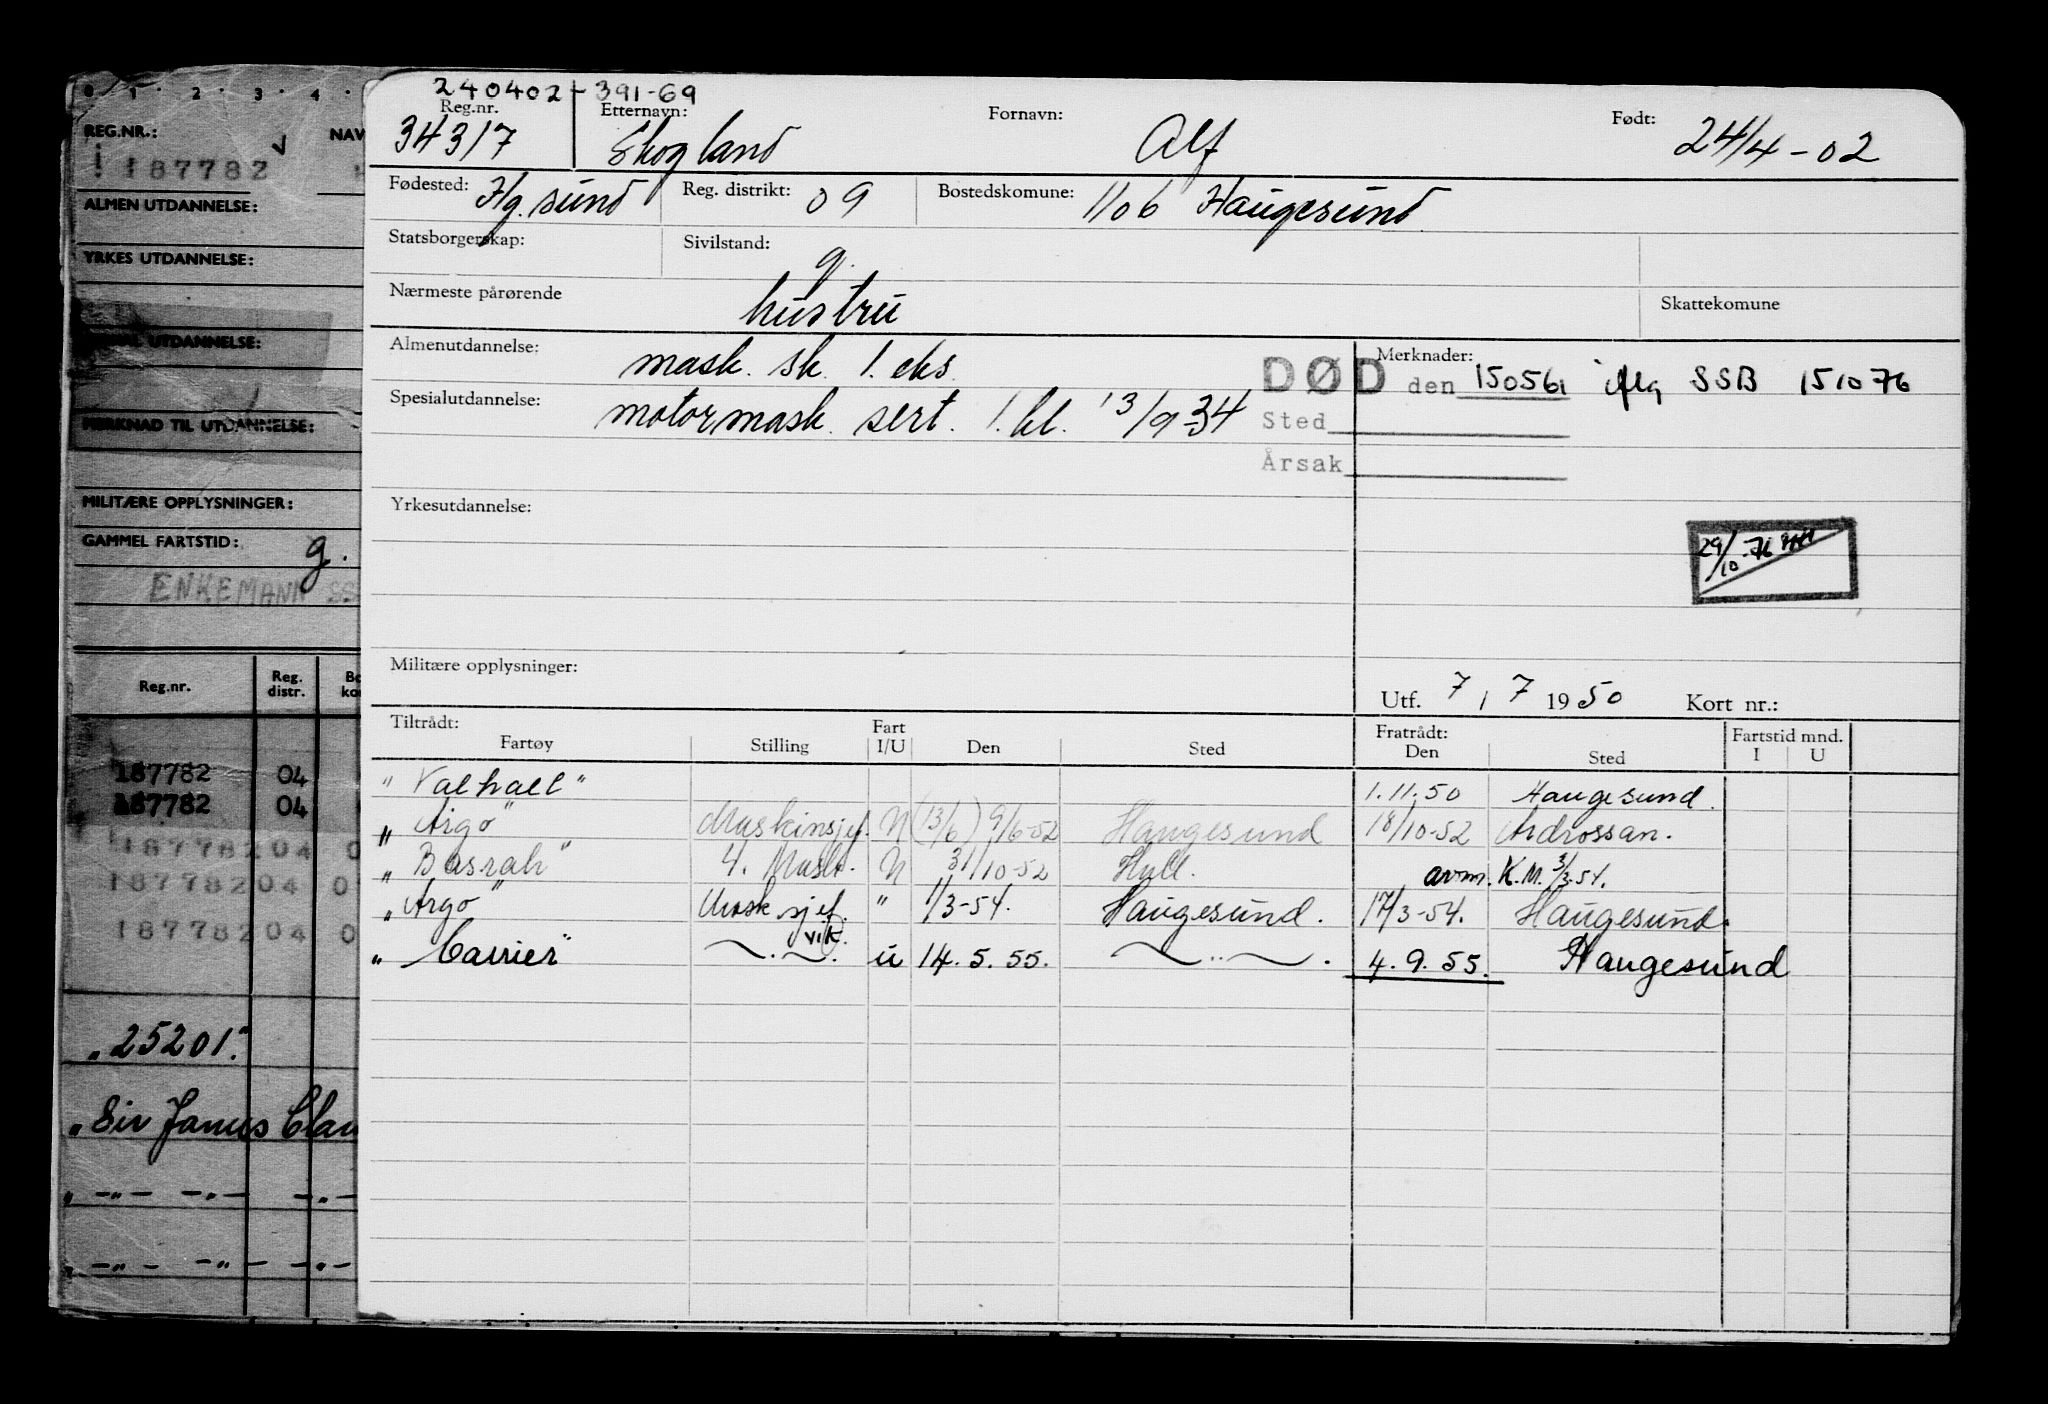 0 1 2 3 4
REG.NR.: NAV
187782
ALMEN UTDANNELSE:
YRKES UTDANNELSE:
UTDANNELSE:
MERKNAD TIL UTDANNELSE:
MILITÆRE OPPLYSNINGER:
GAMMEL FARTSTID: g.
ENKEMANN SS
Reg.nr. Reg. distr. Bo ko
187782 04
187782 04
187782 04 0
187782 04 0
187782 04 0
"25201"
"Sir James Clar
" —"— —"— —"—
" —"— —"— —"—
240402-391-69
Reg.nr. Etternavn: Fornavn: Født:
34317 Skogland Alf 24/4-02
Fødested: Hg.sund Reg. distrikt: 09 Bostedskomune: 1106 Haugesund
Statsborgerskap: Sivilstand: g.
Nærmeste pårørende hustru Skattekomune
Almenutdannelse: mask. sk. 1. eks. Merknader:
DØD den 150561 iflg SSB 151076
Spesialutdannelse: motormask. sert. 1. kl. 13/9-34
Sted
Årsak
Yrkesutdannelse:
29/10-76
Militære opplysninger:
Utf. 7/7 1950 Kort nr.:
Tiltrådt: Fart Fratrådt: Fartstid mnd.
Fartøy Stilling I/U Den Sted Den Sted I U
"Valhall" 1.11.50 Haugesund.
"Argo" Maskinsjef. N (13/6) 9/6-52 Haugesund 18/10-52 Ardrossan.
"Basrah" 4. Mask. N 31/10-52 Hull. avm. K.M. 3/3-54.
"Argo" Mask.sjef. " 1/3-54. Haugesund. 17/3-54. Haugesund.
"Carrier" —..— vik. u 14.5.55. —..—. 4.9.55. Haugesund